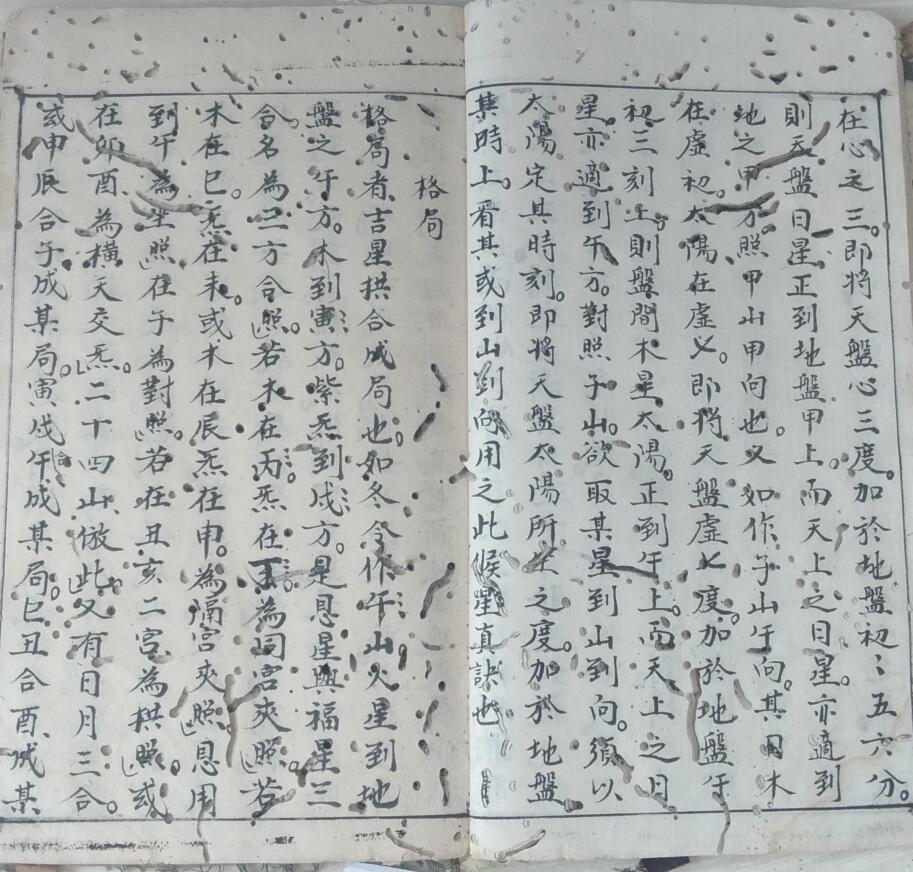 在心之三。即将天盤心三度。加於地盤初〻五六分。
則天盤日星正到地盤甲上。而天上之日星。亦適到
地之甲方。照甲山甲向也。又如作子山午向。其日木
在虛初。太陽在虛义。即将天盤虛七度。加於地盤午
初三刻上。則盤間木星太陽。正到午上。而天上之日
星。亦適到午方。對照子山。欲取某星到山到向。須以
太陽定其時刻。即将天盤太陽所在之度。加於地盤
某時上。看其或到山到向用之此候星真訣也
格局
格局者吉星拱合成局也。如冬令作午山。火星到地
盤之午方。木到寅方。紫炁到戌方。是恩星與福星三
合。名為三方合照。若木在丙。炁在丁。為同宮夾照。若
木在巳。炁在未。或木在辰炁在申。為隔宮夾照。恩用
到午為坐照。在子為對照。若在丑亥二宮。為拱照。或
在卯酉為横天交炁。二十四山倣此。又有日月三合。
或申辰合子。成某局。寅戌合午成某局。巳丑合酉成某